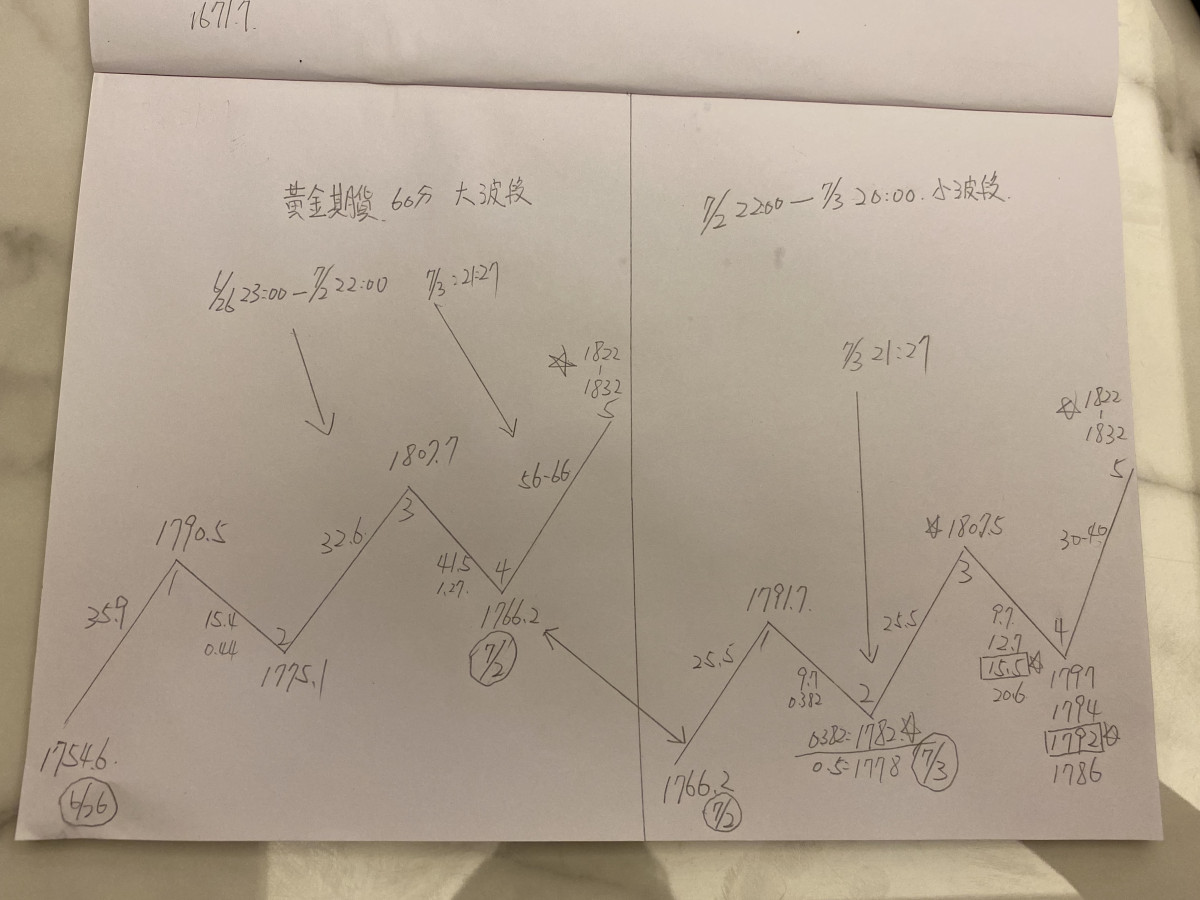 1671.7
黃金期貨 60分 大波段
6/26 23:00 — 7/2 22:00
7/3 : 21:27
☆ 1822
1832
5
56-66
1807.7
3
32.6
41.5
1.27
4
1766.2
7/2
1790.5
1
35.9
15.4
0.44
2
1775.1
1754.6
6/26
7/2 2200 — 7/3 20:00 小波段
7/3 21:27
☆ 1822
1832
5
30-40
☆ 1807.5
3
25.5
9.7
12.7
15.5 ☆
20.6
4
1797
1794
1792 ☆
1786
1791.7
1
25.5
9.7
0.382
2
0382=1782 ☆
0.5=1778
7/3
1766.2
7/2